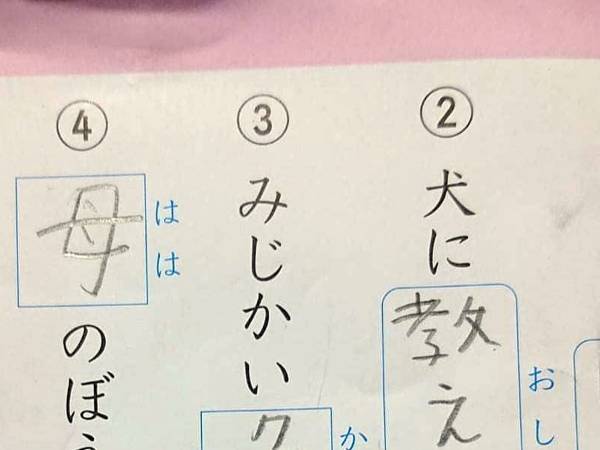 ②
犬に教え
おし
③
みじかい
か
④
母のぼう
はは